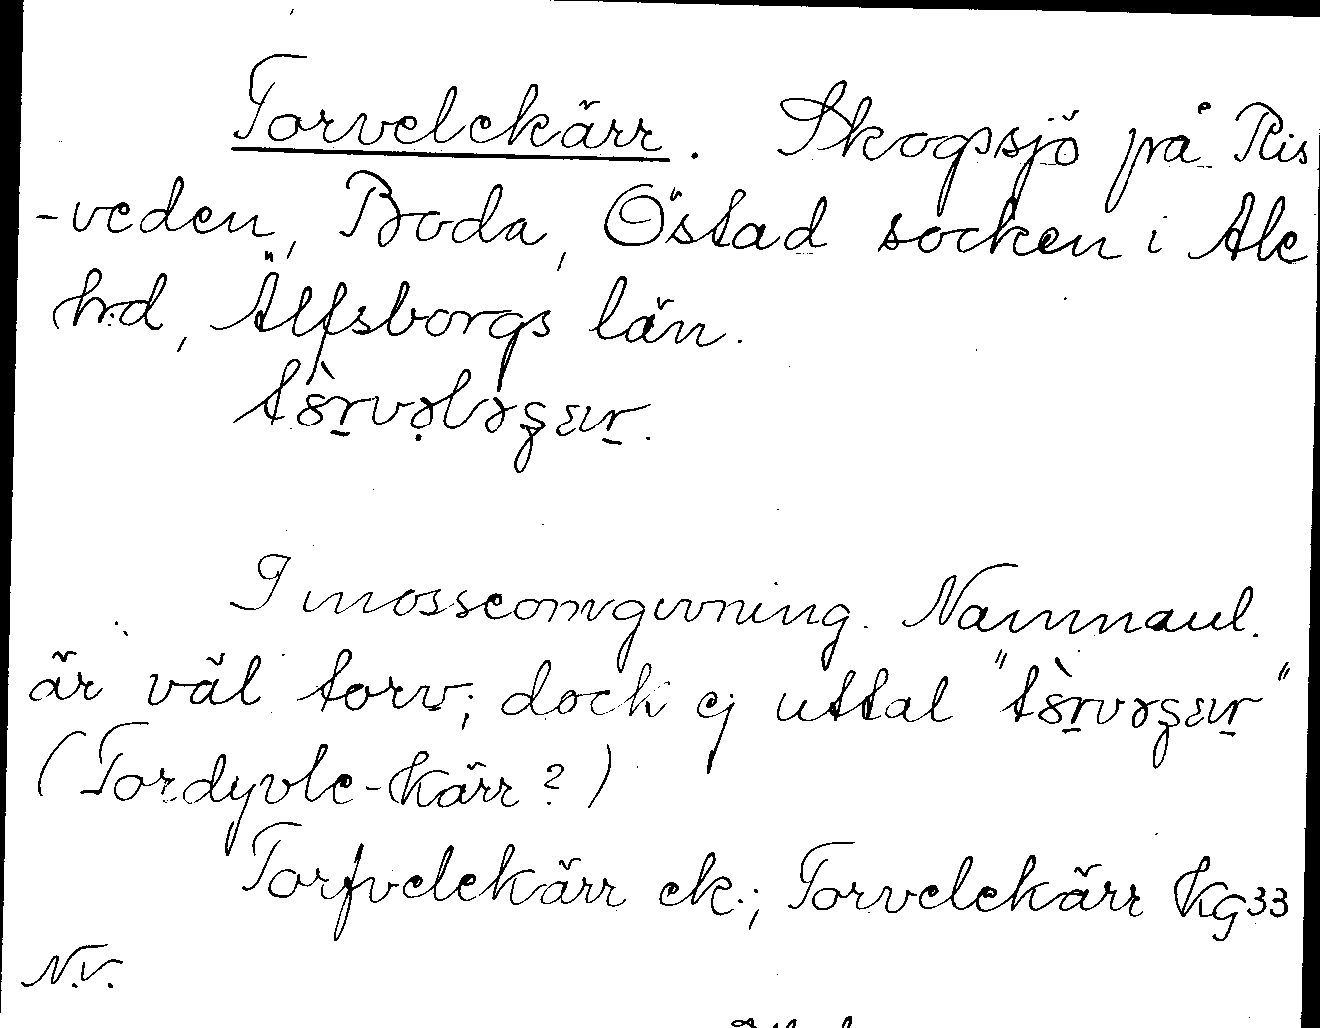 Torvelekärr. Skogssjö på Ris
-veden, Boda, Östad socken i Ale
hd, Älfsborgs län.
I mosseomgivning. Namnaul.
är väl torv; dock ej uttal
(Tordyvle-kärr?)
Torfvelekärr ek.; Torvelekärr Kg 33
N.V.